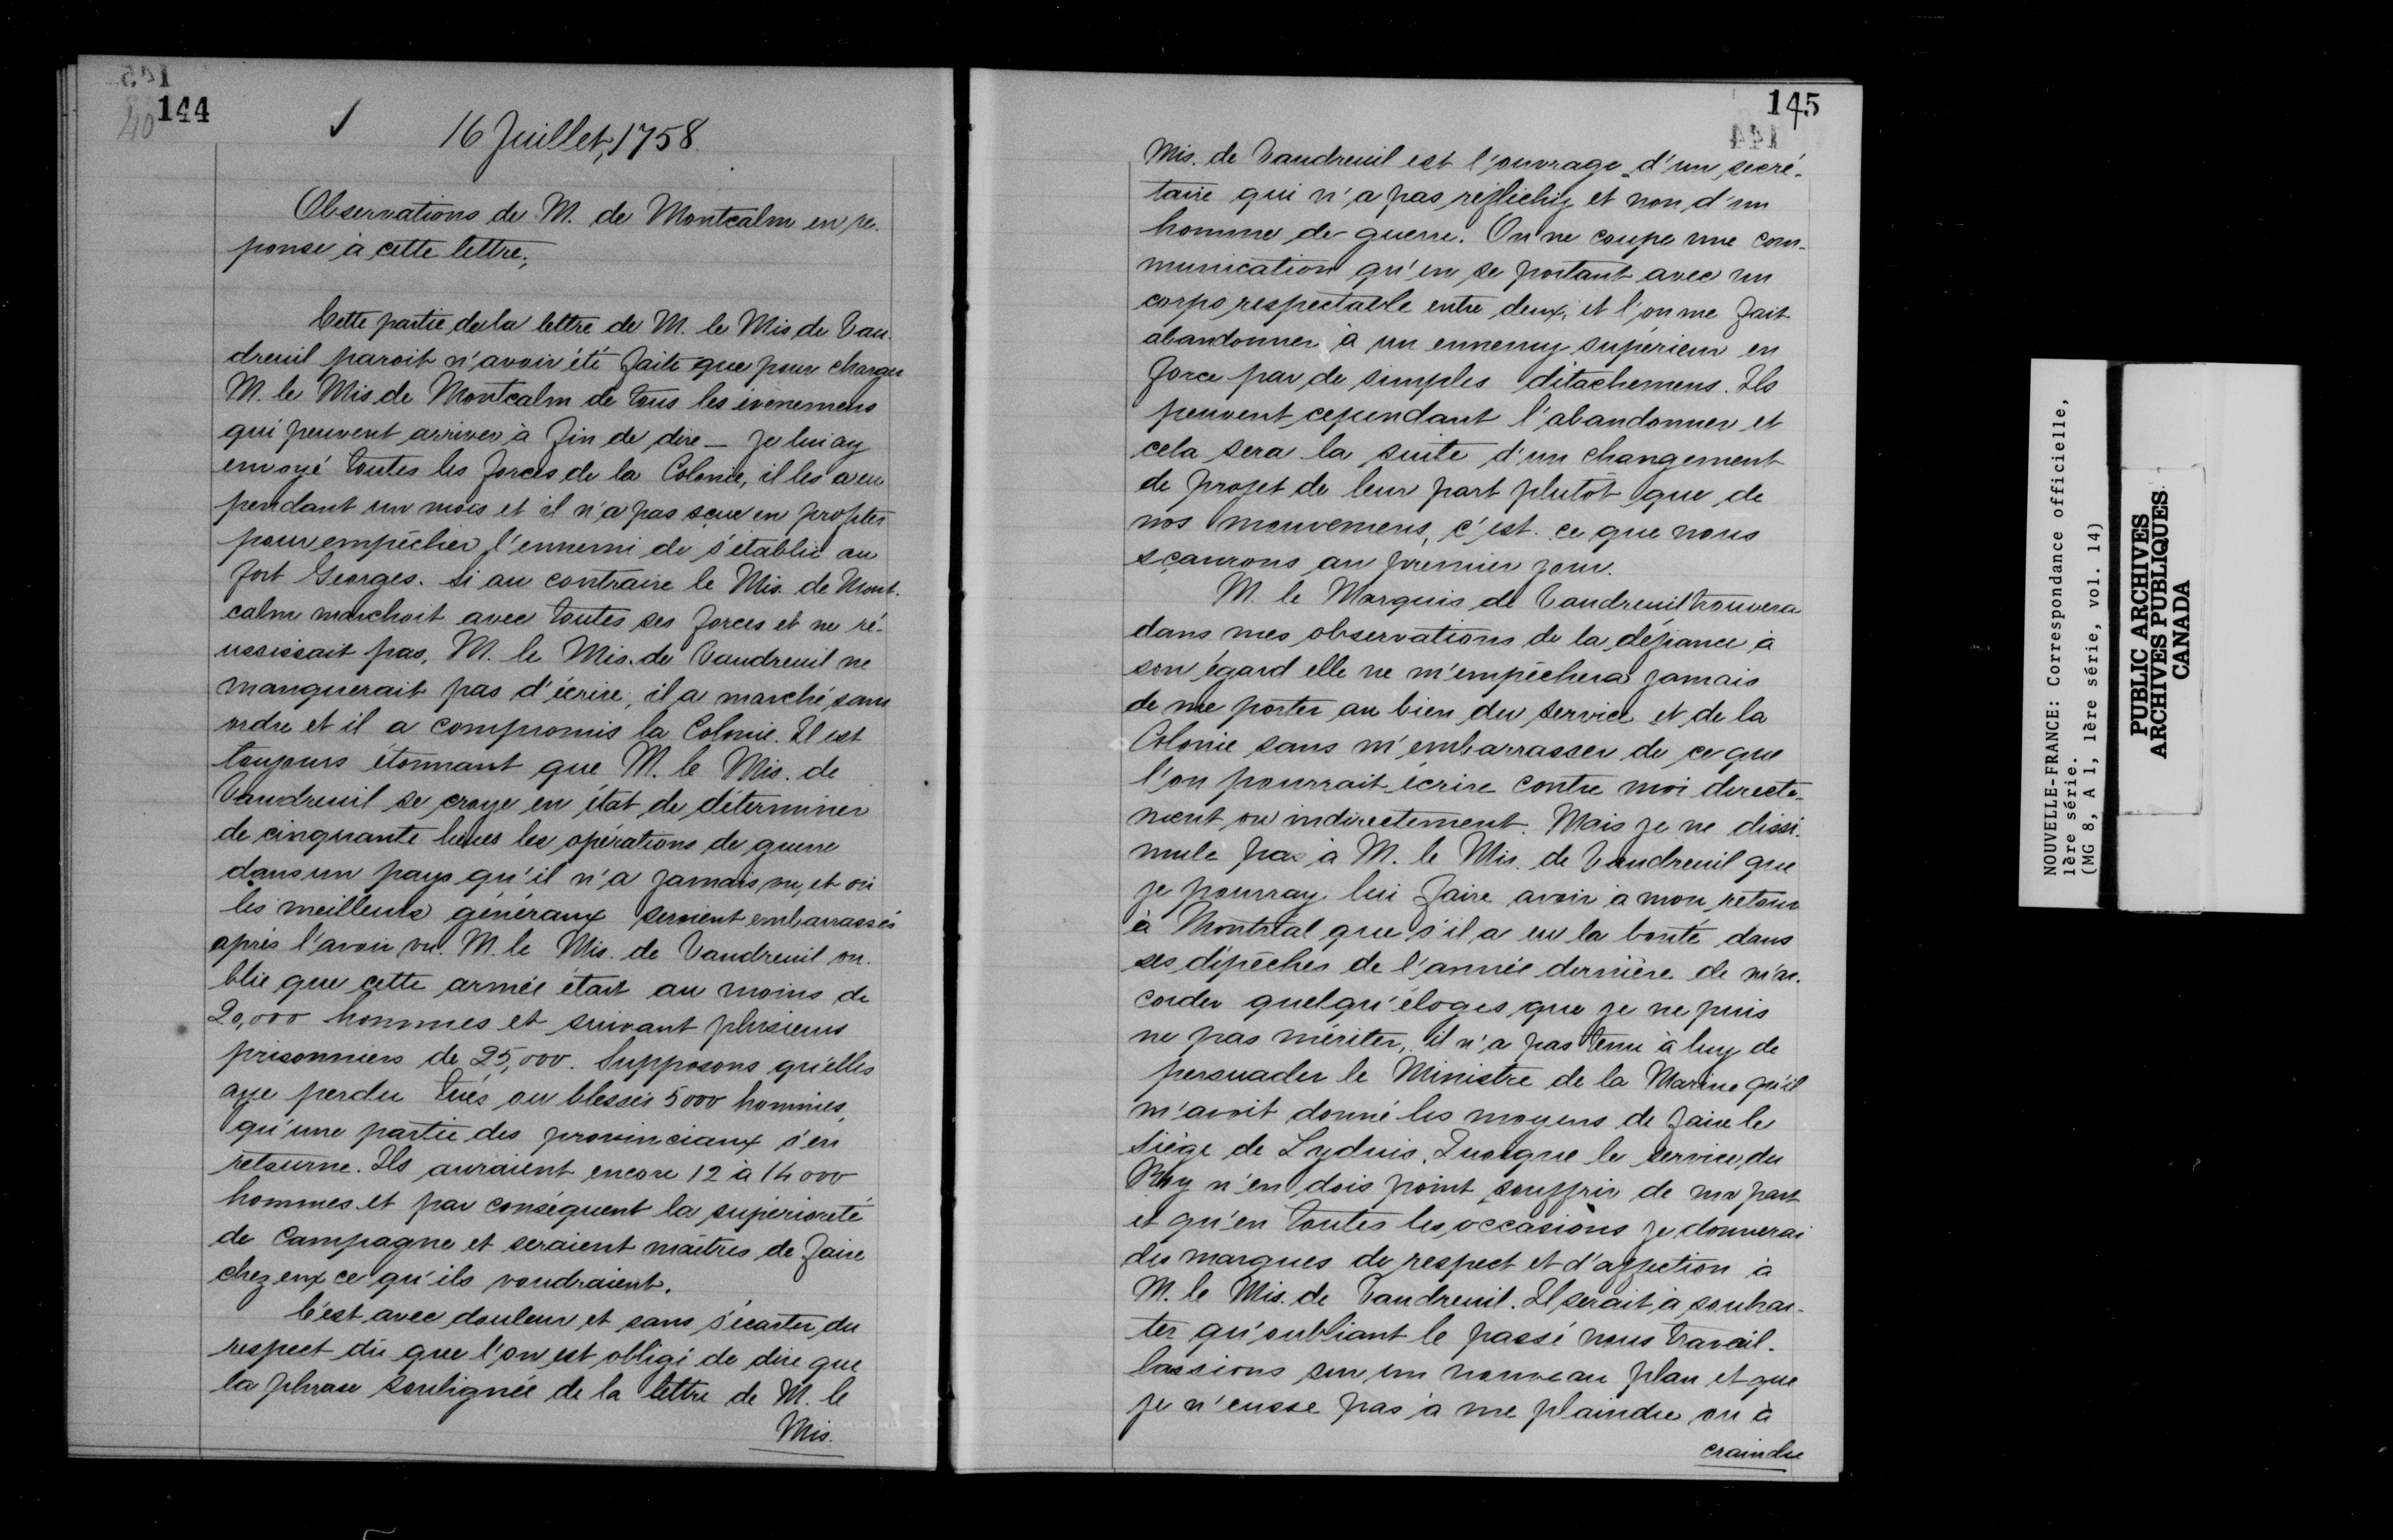 144
40
16 Juillet, 1758.
Observations de M. de Montcalm en re-
ponse à cette lettre;
Cette partie de la lettre de M. le Mis de Vau-
dreuil paroit n'avoir été faite que pour charger
M. le Mis de Montcalm de tous les évènemens
qui peuvent arriver à fin de dire — je lui ay
envoyé toutes les forces de la Colonie, il les a eu
pendant un mois et il n'a pas sçue en profiter
pour empêcher l'ennemi de s'établir au
fort Georges. Si au contraire le Mis. de Mont-
calm marchoit avec toutes ses forces et ne ré-
ussissait pas, M. le Mis. de Vaudreuil ne
manquerait pas d'écrire; il a marché sans
ordre et il a compromis la Colonie. Il est
toujours étonnant que M. le Mis. de
Vaudreuil se croye en état de déterminer
de cinquante lieues les opérations de guerre
dans un pays qu'il n'a jamais vu, et où
les meilleurs généraux seroient embarrassés
après l'avoir vu. M. le Mis. de Vaudreuil ou-
blie que cette armée était au moins de
20,000 hommes et suivant plusieurs
prisonniers de 25,000. Supposons qu'elles
aye perdu tués ou blessés 5000 hommes,
qu'une partie des provinciaux s'en
retourne. Ils auraient encore 12 à 14000
hommes et par conséquent la supériorité
de Campagne et seraient maîtres de faire
chez eux ce qu'ils voudraient.
C'est avec douleur et sans s'écarter du
respect dû que l'on est obligé de dire que
la phrase soulignée de la lettre de M. le
Mis.
145
Mis. de Vaudreuil est l'ouvrage d'un secré-
taire qui n'a pas réflechiy et non d'un
homme de guerre. On ne coupe une com-
munication qu'en se portant avec un
corps respectable entre deux, et l'on me fait
abandonner à un ennemy supérieur en
force par de simples détachemens. Ils
peuvent cependant l'abandonner et
cela sera la suite d'un changement
de projet de leur part plutôt que de
nos mouvemens, c'est ce que nous
sçaurons au premier jour.
M. le Marquis de Vaudreuil trouvera
dans mes observations de la défiance à
son égard elle ne m'empêchera jamais
de me porter au bien du service et de la
Colonie sans m'embarrasser de ce que
l'on pourrait écrire contre moi directe-
ment ou indirectement. Mais je ne dissi-
mule pas à M. le Mis. de Vaudreuil que
je pourray lui faire avoir à mon retour
à Montréal que s'il a eu la bonté dans
ses dépêches de l'année dernière de m'ac-
corder quelqu'éloges que je ne puis
ne pas mériter, il n'a pas tenu à luy de
persuader le Ministre de la Marine qu'il
m'avoit donné les moyens de faire le
siège de Lydius. Quoique le service du
Roy n'en dois point souffrir de ma part
et qu'en toutes les occasions je donnerai
des marques de respect et d'affection à
M. le Mis. de Vaudreuil. Il serait à souhai-
ter qu'oubliant le passé nous travail-
lassions sur un nouveau plan et que
je n'eusse pas à me plaindre ou à
craindre
NOUVELLE-FRANCE: Correspondance officielle,
1ère série.
(MG 8, A 1, 1ère série, vol. 14)
PUBLIC ARCHIVES
ARCHIVES PUBLIQUES
CANADA